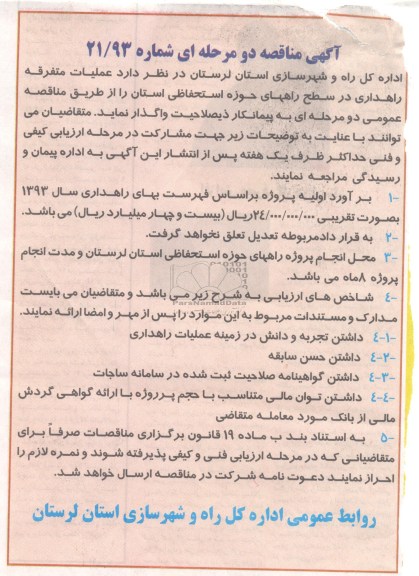 آگهی مناقصه دو مرحله ای شماره ۲۱/۹۳
اداره کل راه و شهرسازی استان لرستان در نظر دارد عملیات متفرقه
راهداری در سطح راههای حوزه استحفاظی استان را از طریق مناقصه
عمومی دو مرحله ای به پیمانکار ذیصلاحیت واگذار نماید. متقاضیان می
توانند با عنایت به توضیحات زیر جهت مشارکت در مرحله ارزیابی کیفی
و فنی حداکثر ظرف یک هفته پس از انتشار این آگهی به اداره پیمان و
رسیدگی مراجعه نمایند.
۱- بر آورد اولیه پروژه براساس فهرست بهای راهداری سال ۱۳۹۳
بصورت تقریبی ۲۴/۰۰۰/۰۰۰/۰۰۰ریال (بیست و چهار میلیارد ریال) می باشد.
۲- به قرار دادمربوطه تعدیل تعلق نخواهد گرفت.
۳- محل انجام پروژه راههای حوزه استحفاظی استان لرستان و مدت انجام
پروژه ۸ماه می باشد.
۴- شاخص های ارزیابی به شرح زیر می باشد و متقاضیان می بایست
مدارک و مستندات مربوط به این موارد را پس از مهر و امضا ارائه نمایند.
۴-۱- داشتن تجربه و دانش در زمینه عملیات راهداری
۴-۲- داشتن حسن سابقه
۴-۳- داشتن گواهینامه صلاحیت ثبت شده در سامانه ساجات
۴-۴- داشتن توان مالی متناسب با حجم پرروژه با ارائه گواهی گردش
مالی از بانک مورد معامله متقاضی
۵- به استناد بند ب ماده ۱۹ قانون برگزاری مناقصات صرفاً برای
متقاضیانی که در مرحله ارزیابی فنی و کیفی پذیرفته شوند و نمره لازم را
احراز نمایند دعوت نامه شرکت در مناقصه ارسال خواهد شد.
روابط عمومی اداره کل راه و شهرسازی استان لرستان